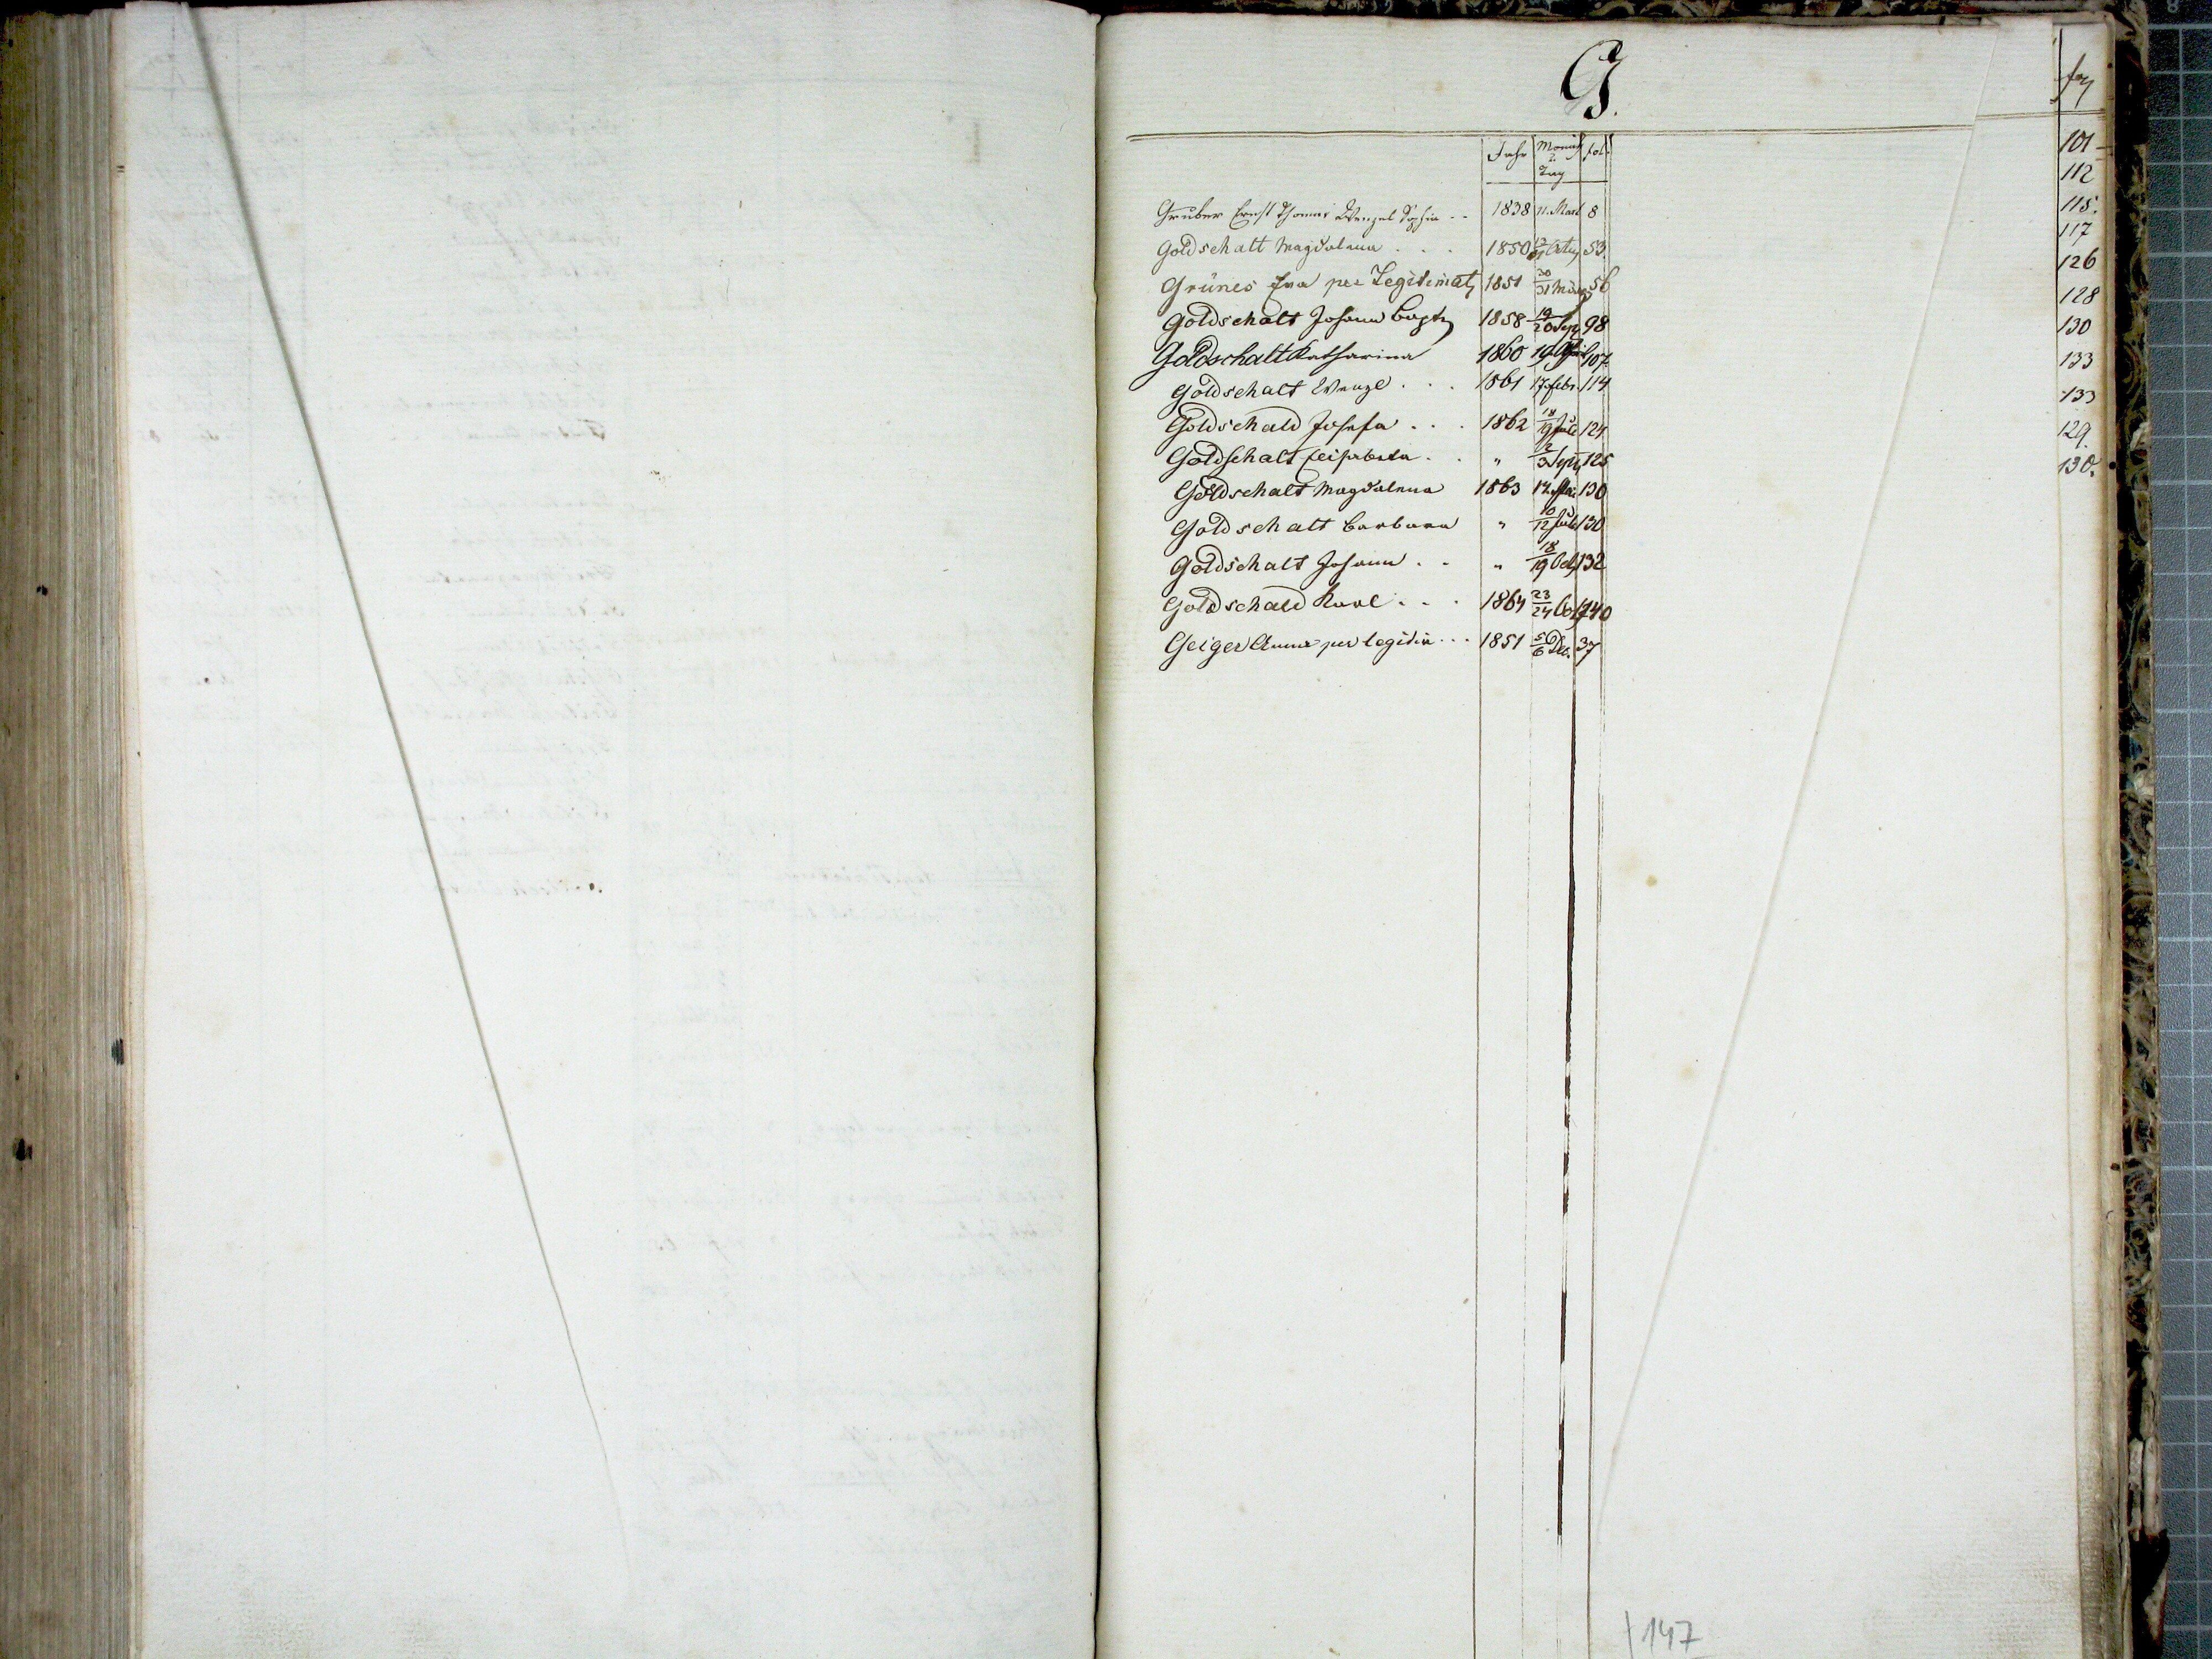 G.
Jahr Monat u. Tag fol.
Gruber Ernst Thomas Wenzel Sophia .. 1838 11. Mart 8
Goldschalt Magdalena . . . 1850 53.
Grünes Eva per Legitimat 1851 30/31 März 56
Goldschalt Johann Bapt 1858 19/20 Sept 98
Goldschalt Katharina 1860 19 April 107.
Goldschalt Wenzl . . . 1861 17. Febr. 114
Goldschald Josefa . . . 1862 18/19 Juli 124
Goldschalt Elisabeta . . " 2/3 Sept 125
Goldschalt Magdalena 1863 12 Mai 130
Goldschalt Barbara " 10/12 Juli 130
Goldschalt Johann . . " 18/19 Oct 132
Goldschald Karl . . . 1864 23/24 Oct 140
Geiger Anna per legitim ... 1851 5/6 Dec. 37
fol
101
112
115.
117
126
128
130
133
133
129.
130.
147